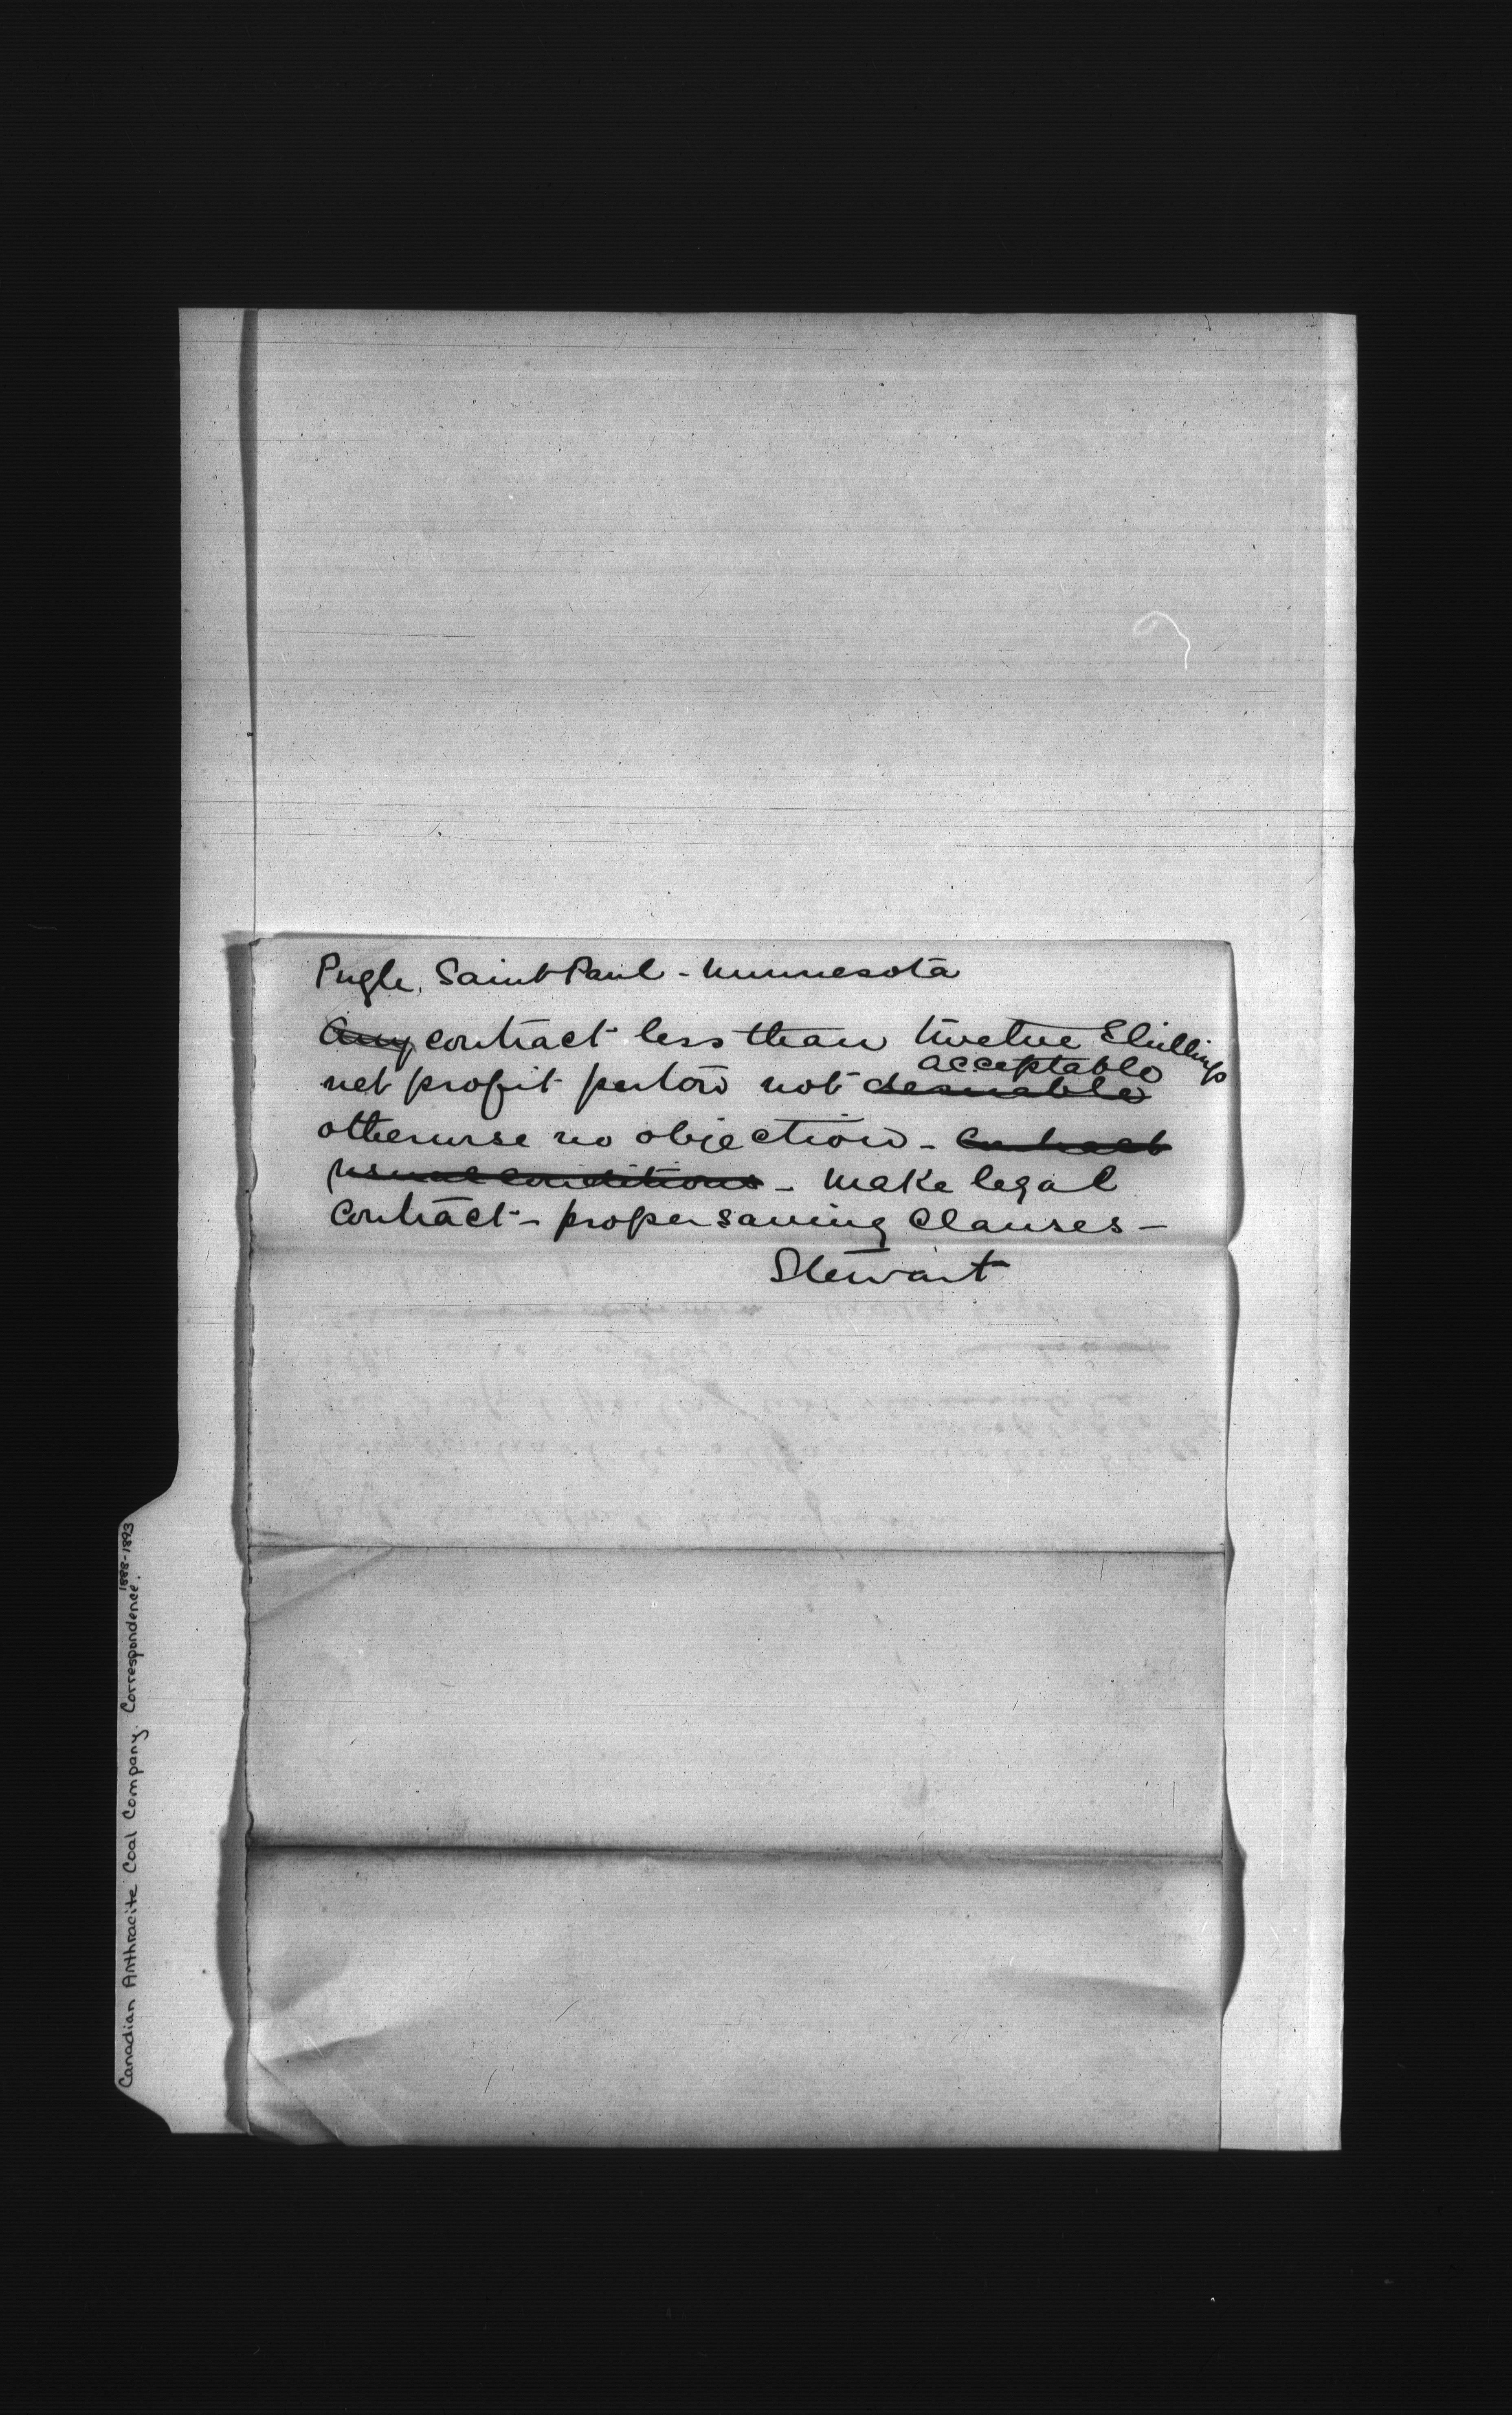 Pugle, Saint Paul - Minnesota
Any contract less than twelve Shillings
acceptable
net profit per ton not desirable
otherwise no objection - Contract
usual conditions - Make legal
Contract - proper saving clauses -
Stewart
Canadian Anthracite Coal Company. Correspondence.
1888-1893